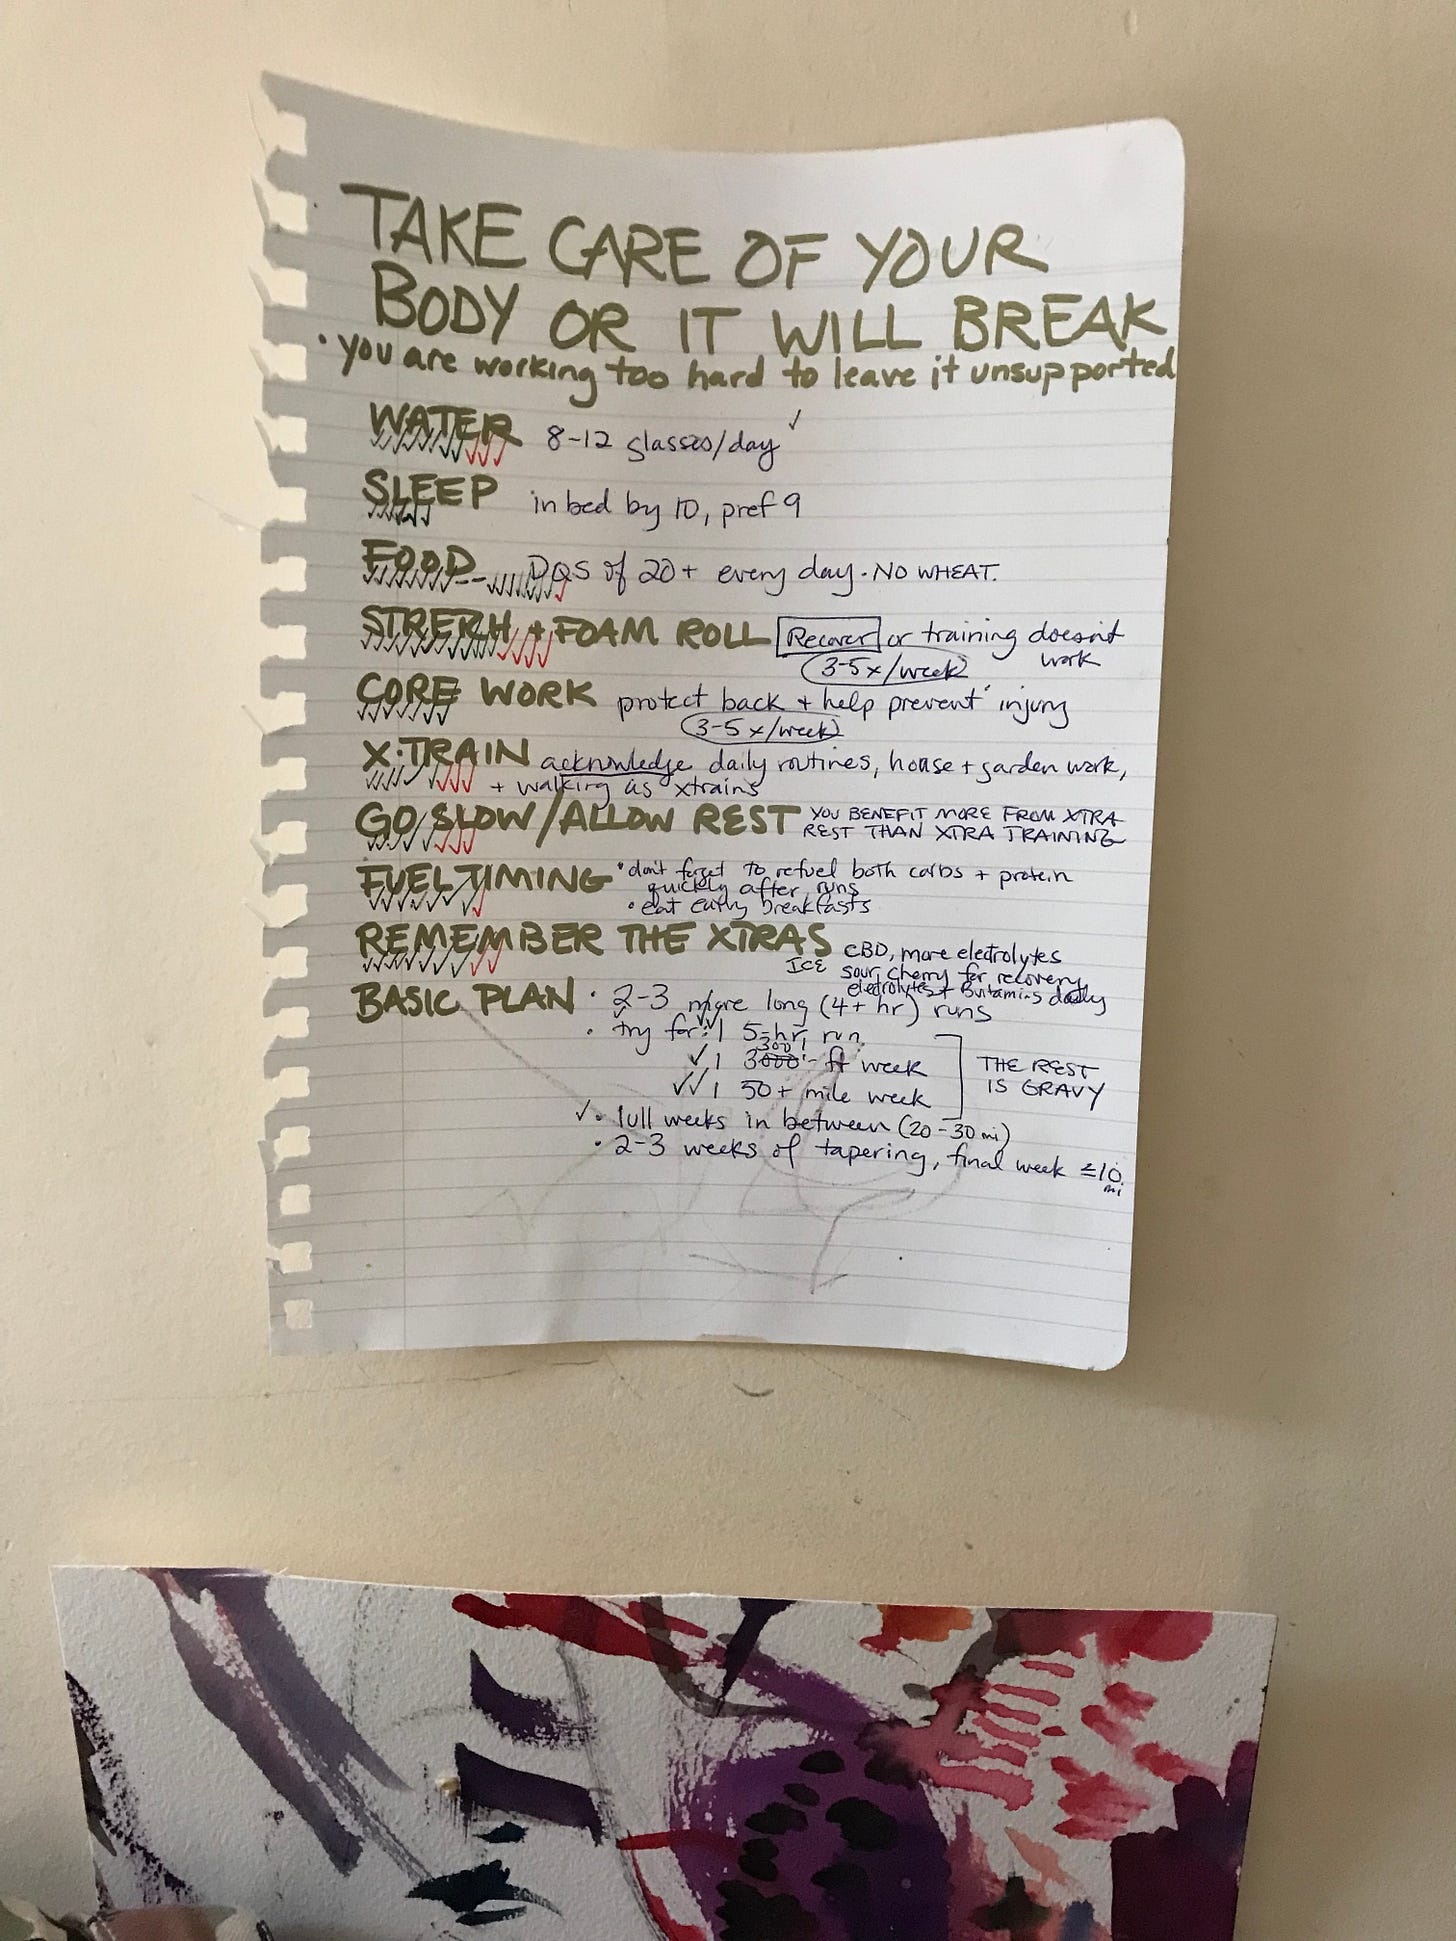 TAKE CARE OF YOUR
BODY OR IT WILL BREAK
• you are working too hard to leave it unsupported
WATER 8-12 glasses/day ✓
SLEEP in bed by 10, pref 9
FOOD DQS of 20+ every day. NO WHEAT.
STRERH + FOAM ROLL Recover or training doesn't
work
3-5x/week
CORE WORK protect back + help prevent injury
3-5x/week
X-TRAIN acknowledge daily routines, house + garden work,
+ walking as xtrains
GO SLOW/ALLOW REST YOU BENEFIT MORE FROM XTRA
REST THAN XTRA TRAINING
FUEL TIMING • don't forget to refuel both carbs + protein
quickly after runs
• eat early breakfasts
REMEMBER THE XTRAS CBD, more electrolytes
ICE sour cherry for recovery
electrolytes + daily
BASIC PLAN • 2-3 more long (4+ hr) runs
• try for: 1 5-hr run
✓ 1 3000'- ft week
✓✓ 1 50+ mile week
THE REST
IS GRAVY
✓ • lull weeks in between (20-30 mi)
• 2-3 weeks of tapering, final week ≤10
mi